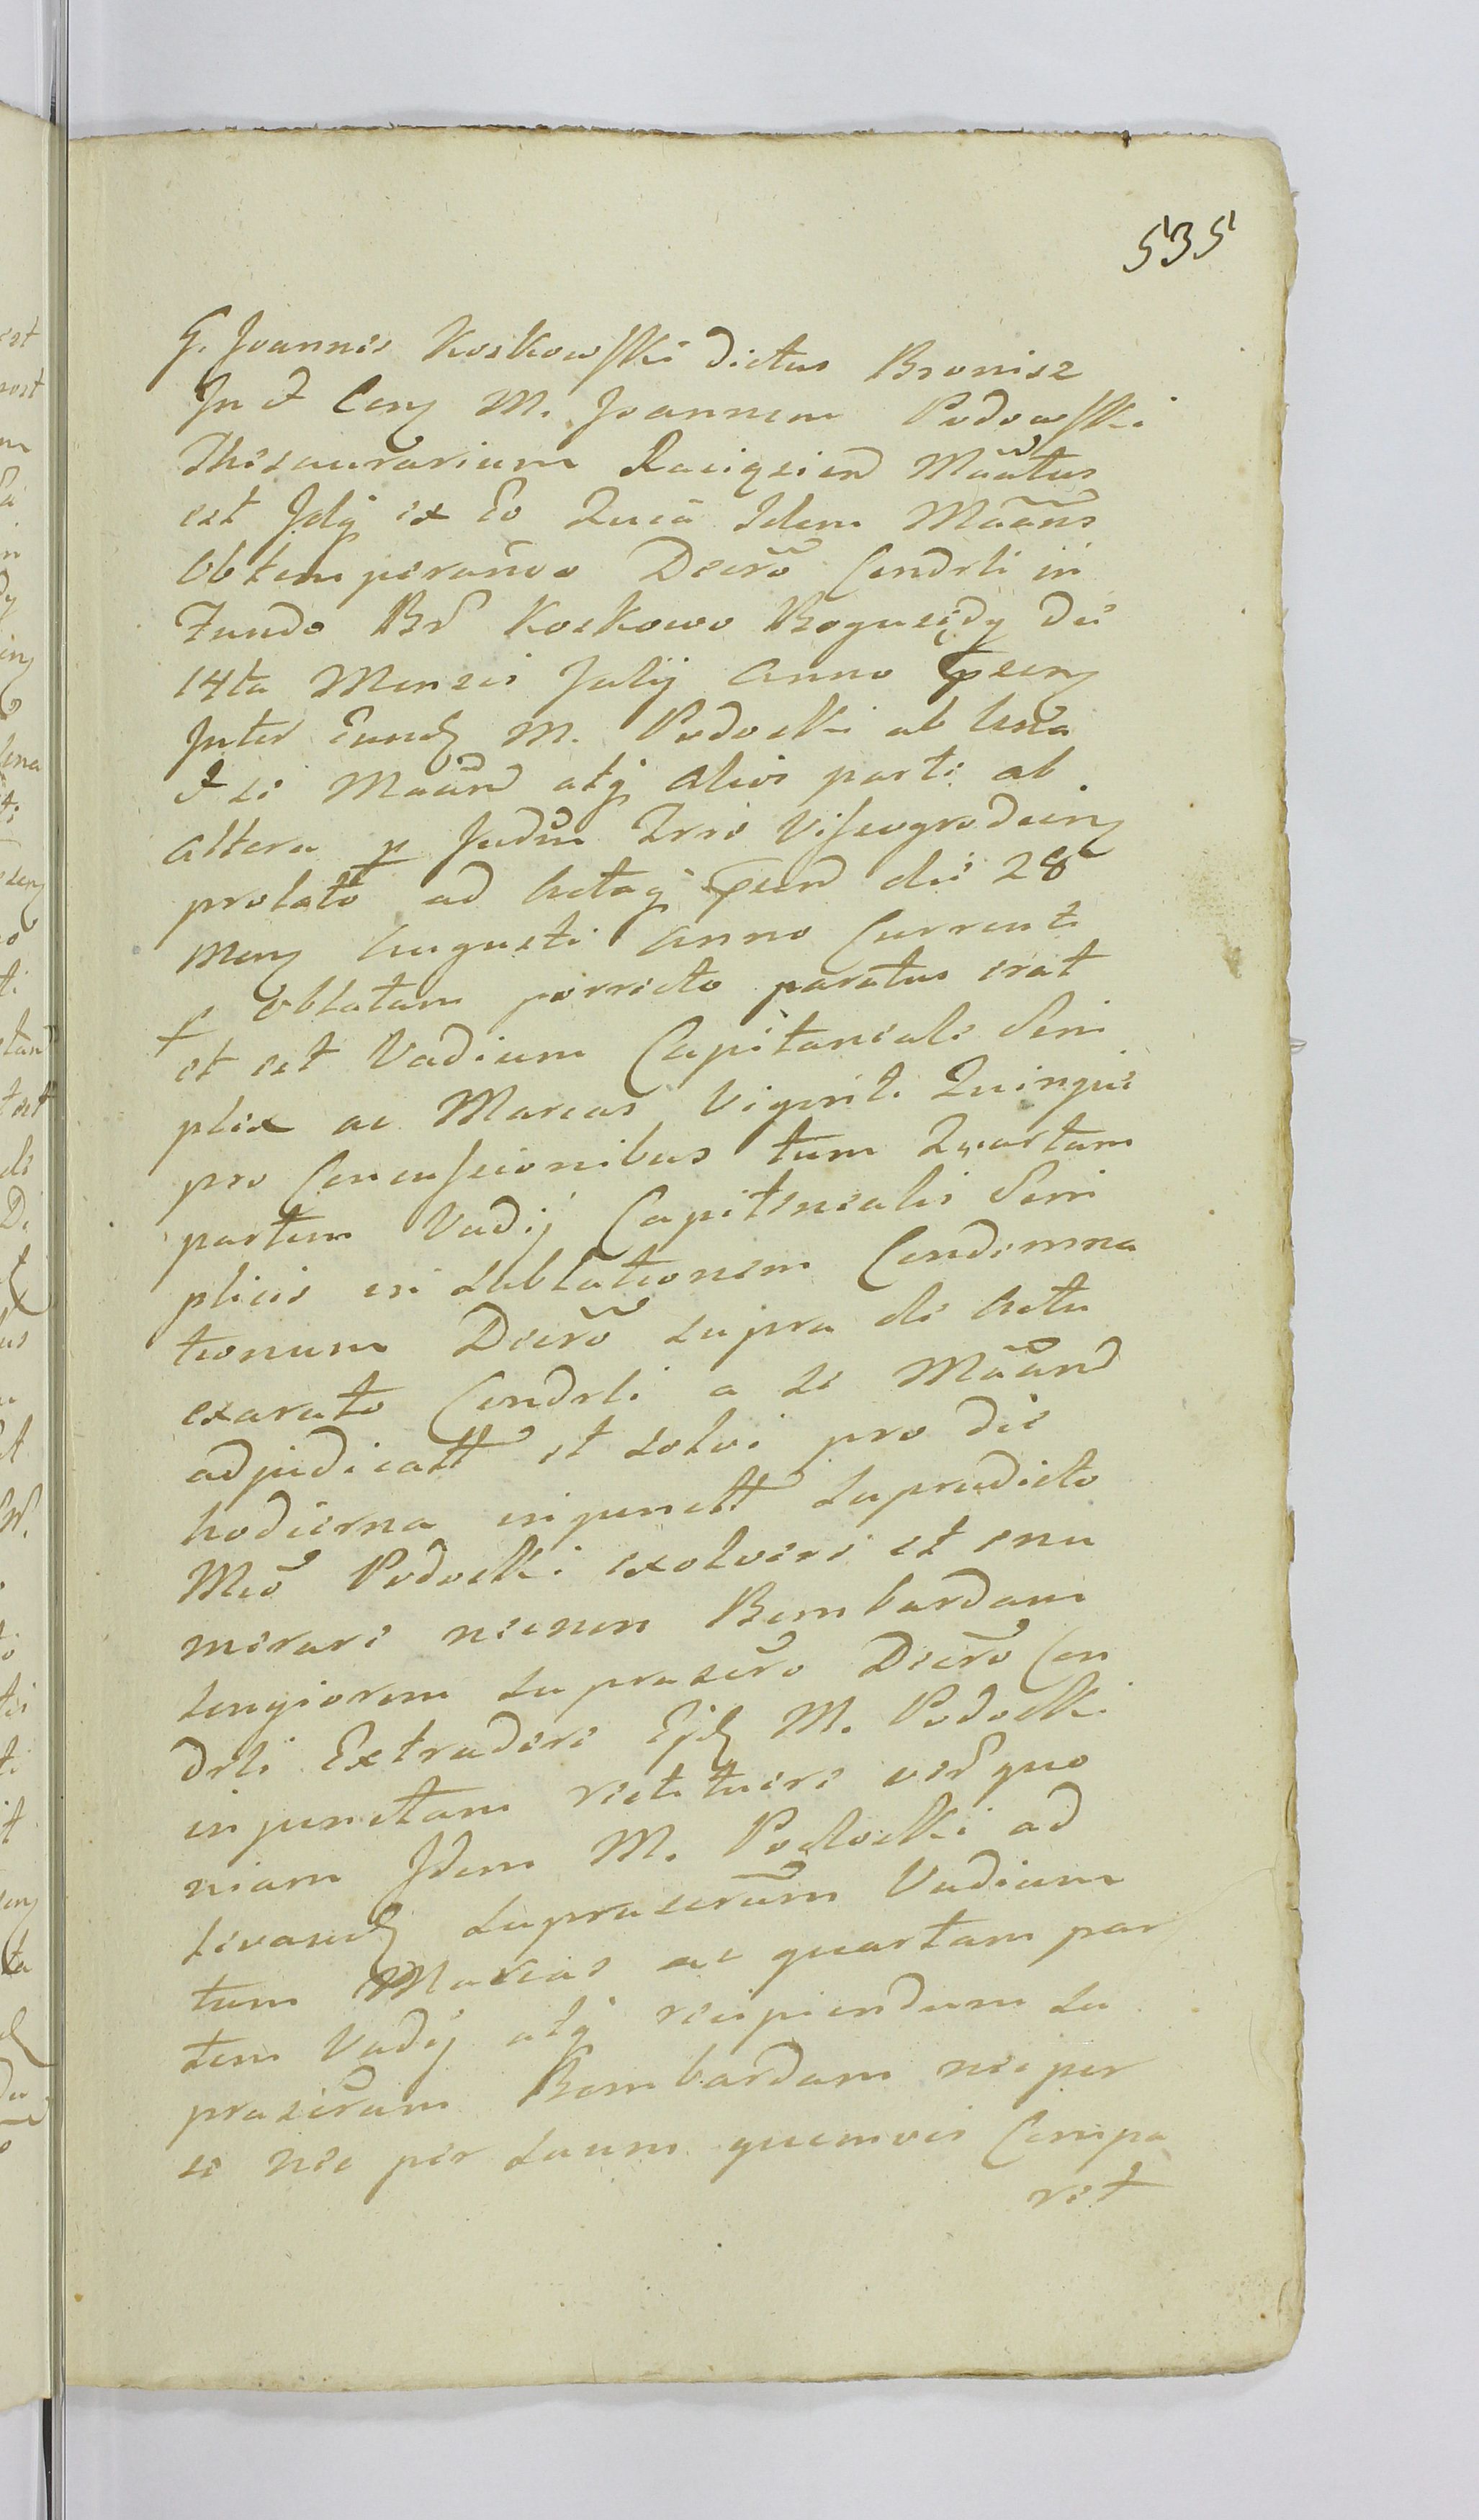 535
G. Joannes Koskowski dictus Bronisz
In et Con M. Joannem Podowski
Thesaurarium Raciązień Mãatus
est Idq ex Eo Quia Idem Mããns
Obtemperando Decro Condrli in
Fundo Bu Koskowo Boguszędy die
14ta Mensis Julij Anno pren
Inter Eund M. Podoski ab Una
et se Mããn atq alios parte ab
altera p Judm Trro Vissogrodien
prolato ad Actaq psen die 28
Men Augusti Anno Currenti
p Oblatam porrecto paratus erat
et est Vadium Capitaneale Sem
plex ac Marcas Viginti Quinque
pro Concussionibus tum Quartam
partem Vadij Capitenealis Sim
plicis in Sublationem Condemna
tionum Decro supra de Actu
exarato Condrli a se Mããn
adjudicatt et solvi pro die
hodierna injunctt Supradicto
Mco Podoski exolvere et enu
merare necnon Bombardam
longiorem supra scro Decro Con
drli Extradere Ejd M. Podoski
injunctam restituere ver quo
niam Idem M. Podoski ad
levand suprascrum Vadium
tum Marcas ac quartam par
tem Vadij atq recipiendum su
prascram Bombardam nec per
se nec per suum quemvis Compa
ret